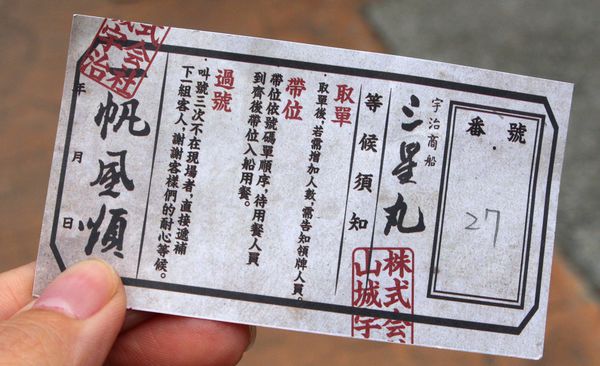 番號
27
宇治商船
三星丸
等候須知
取單
取單後，若需增加人數，需告知領牌人員。
帶位
帶位依號碼單順序，待用餐人員
到齊後帶位入船用餐。
過號
叫號三次不在現場者，直接遞補
下一組客人；謝謝客樣們的耐心等候。
帆風順
年 月 日
株式会
山城宇
式会社
宇治